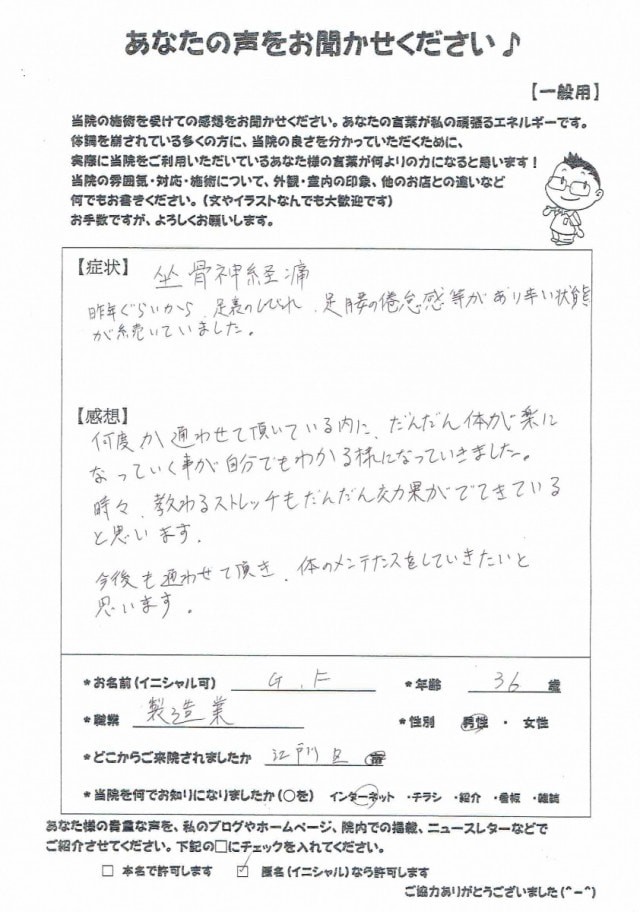 あなたの声をお聞かせください♪
【一般用】
当院の施術を受けての感想をお聞かせください。あなたの言葉が私の頑張るエネルギーです。
体調を崩されている多くの方に、当院の良さを分かっていただくために、
実際に当院をご利用いただいているあなた様の言葉が何よりの力になると思います！
当院の雰囲気・対応・施術について、外観・室内の印象、他のお店との違いなど
何でもお書きください。（文やイラストなんでも大歓迎です）
お手数ですが、よろしくお願いします。
【症状】 坐骨神経痛
昨年ぐらいから、足裏のしびれ、足腰の倦怠感等があり辛い状態
が続いていました。
【感想】
何度か通わせて頂いている内に、だんだん体が楽に
なっていく事が自分でもわかる様になっていきました。
時々、教わるストレッチもだんだん効果がでてきている
と思います。
今後も通わせて頂き、体のメンテナスをしていきたいと
思います。
*お名前（イニシャル可） G.F *年齢 36 歳
*職業 製造業 *性別 男性 ・ 女性
*どこからご来院されましたか 江戸川区
*当院を何でお知りになりましたか（○を） インターネット ・チラシ ・紹介 ・看板 ・雑誌
あなた様の貴重な声を、私のブログやホームページ、院内での掲載、ニュースレターなどで
ご紹介させてください。下記の□にチェックを入れてください。
□ 本名で許可します ☑ 匿名（イニシャル）なら許可します
ご協力ありがとうございました(^-^)